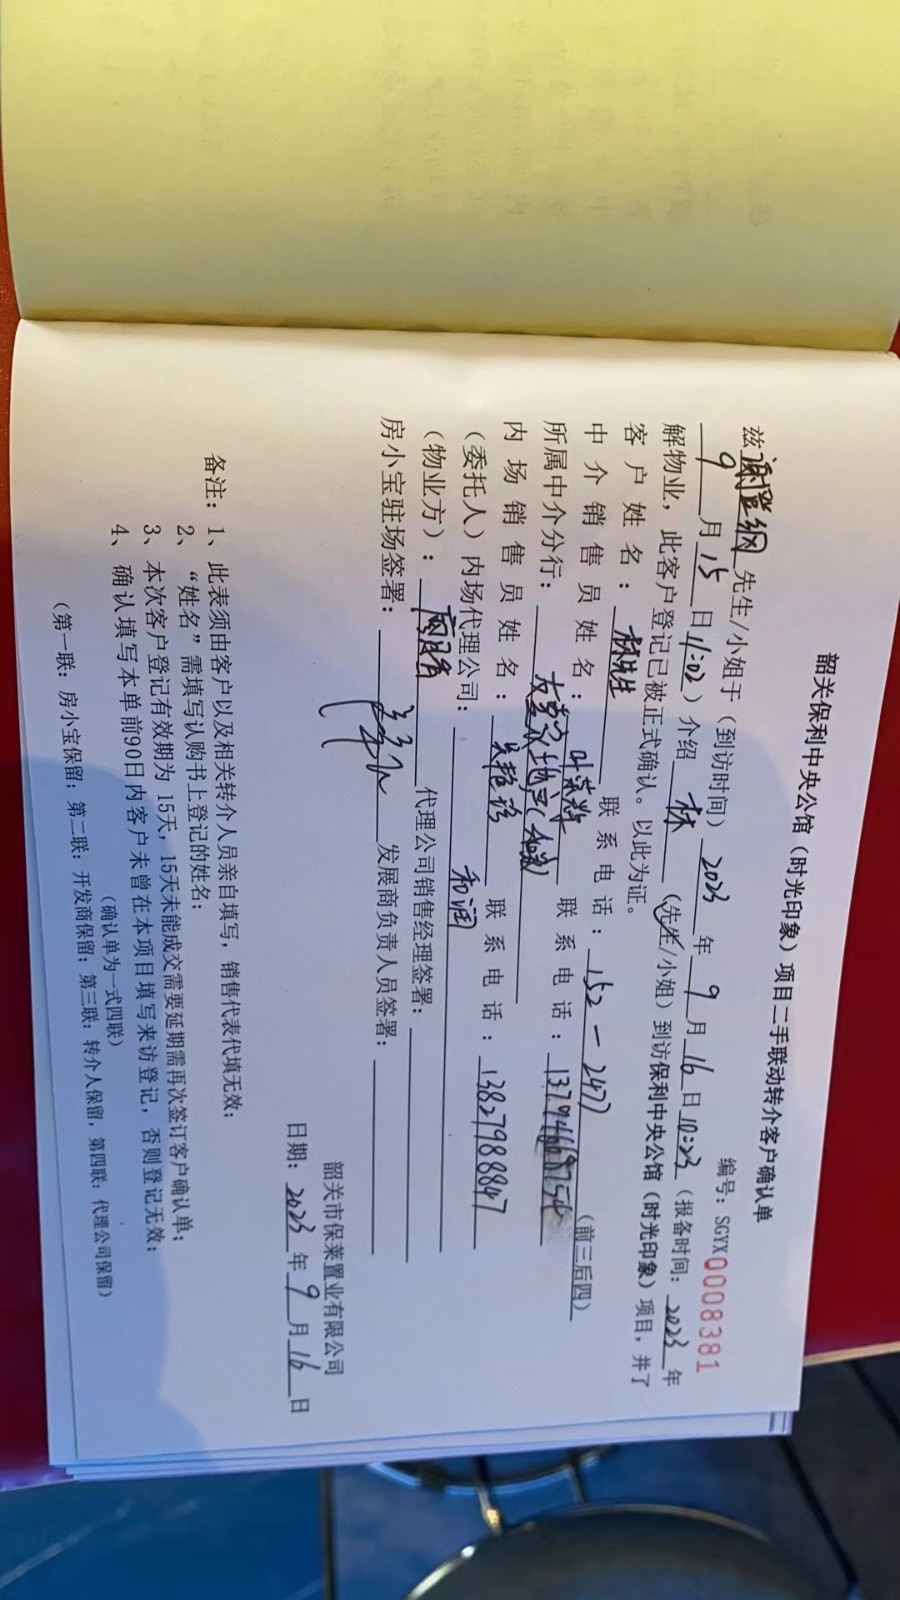 韶关保利中央公馆（时光印象）项目二手联动转介客户确认单
编号：SGYX0008381
兹谢登纲先生/小姐于（到访时间）2023年9月16日10:23（报备时间：2023年
9月15日11:02）介绍林（先生/小姐）到访保利中央公馆（时光印象）项目，并了
解物业，此客户登记已被正式确认。以此为证。
客户姓名：林先生 联系电话：152-2477（前三后四）
中介销售员姓名：叶荣辉 联系电话：13794668754
所属中介分行：
内场销售员姓名：吴艳 联系电话：13827988847
（委托人）内场代理公司：和润
（物业方）： 代理公司销售经理签署：
房小宝驻场签署： 发展商负责人员签署：
韶关市保莱置业有限公司
日期：2023年9月16日
备注：1、此表须由客户以及相关转介人员亲自填写，销售代表代填无效；
2、“姓名”需填写认购书上登记的姓名；
3、本次客户登记有效期为15天，15天未能成交需要延期需再次签订客户确认单；
4、确认填写本单前90日内客户未曾在本项目填写来访登记，否则登记无效；
（确认单为一式四联）
（第一联：房小宝保留；第二联：开发商保留；第三联：转介人保留，第四联：代理公司保留）